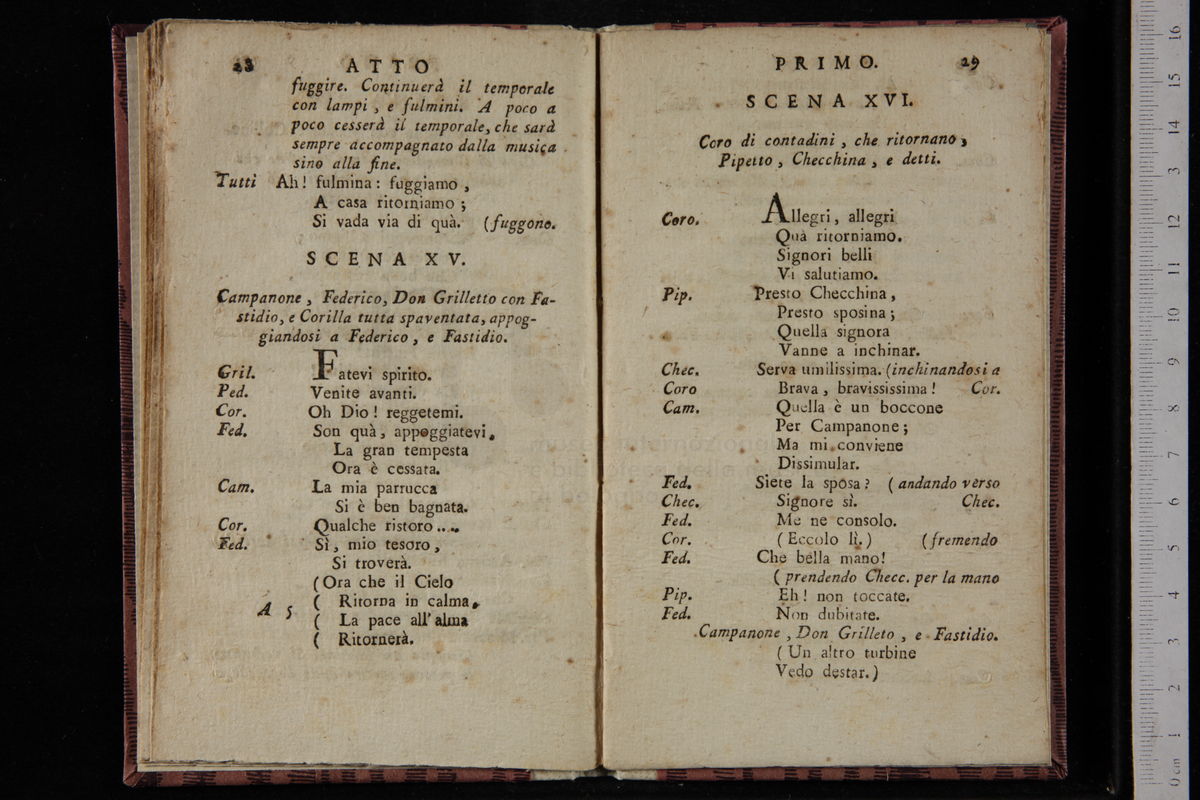 28 ATTO
fuggire. Continuerà il temporale
con lampi, e fulmini. A poco a
poco cesserà il temporale, che sarà
sempre accompagnato dalla musica
sino alla fine.
Tutti Ah! fulmina: fuggiamo,
A casa ritorniamo;
Si vada via di quà. (fuggono.
SCENA XV.
Campanone, Federico, Don Grilletto con Fa-
stidio, e Corilla tutta spaventata, appog-
giandosi a Federico, e Fastidio.
Gril. Fatevi spirito.
Ped. Venite avanti.
Cor. Oh Dio! reggetemi.
Fed. Son quà, appoggiatevi.
La gran tempesta
Ora è cessata.
Cam. La mia parrucca
Si è ben bagnata.
Cor. Qualche ristoro....
Fed. Sì, mio tesoro,
Si troverà.
(Ora che il Cielo
( Ritorna in calma,
A 5 ( La pace all'alma
( Ritornerà.
PRIMO. 29
SCENA XVI.
Coro di contadini, che ritornano,
Pipetto, Checchina, e detti.
Coro. Allegri, allegri
Quà ritorniamo.
Signori belli
Vi salutiamo.
Pip. Presto Checchina,
Presto sposina;
Quella signora
Vanne a inchinar.
Chec. Serva umilissima. (inchinandosi a
Coro Brava, bravississima! Cor.
Cam. Quella è un boccone
Per Campanone;
Ma mi conviene
Dissimular.
Fed. Siete la sposa? (andando verso
Chec. Signore sì. Chec.
Fed. Me ne consolo.
Cor. (Eccolo lì.) (fremendo
Fed. Che bella mano!
(prendendo Checc. per la mano
Pip. Eh! non toccate.
Fed. Non dubitate.
Campanone, Don Grilleto, e Fastidio.
(Un altro turbine
Vedo destar.)
16
15
14
13
12
11
10
9
8
7
6
5
4
3
2
1
0 cm